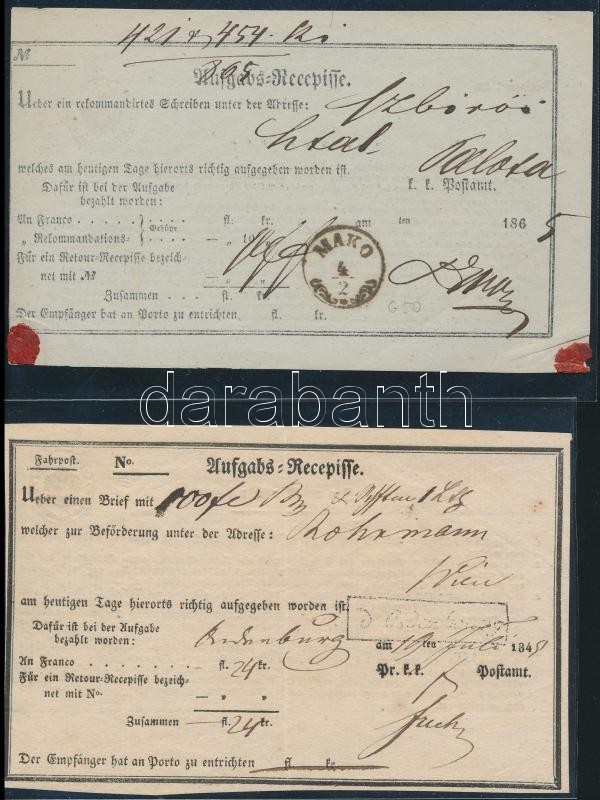 421 & 454.
865
№
Aufgabs-Recepisse.
Ueber ein rekommandirtes Schreiben unter der Adresse:
Palota
welches am heutigen Tage hierorts richtig aufgegeben worden ist.
Dafür ist bei der Aufgabe k. k. Postamt.
bezahlt worden:
An Franco . . . . fl. kr. am ten 1865
„ Rekommandations- Gebühr — „ 10
MAKO
4/2
Für ein Retour-Recepisse bezeich-
net mit № — „ „
Zusammen . . . fl. kr.
G 50
Der Empfänger hat an Porto zu entrichten fl. kr.
darabanth
Fahrpost. No.
Aufgabs-Recepisse.
Ueber einen Brief mit 100 fl
welcher zur Beförderung unter der Adresse: Rohrmann
Wien
am heutigen Tage hierorts richtig aufgegeben worden ist.
Dafür ist bei der Aufgabe
bezahlt worden: Oedenburg am ten July 184
An Franco . . . . . . . fl. 24 kr. Pr. k. k. Postamt.
Für ein Retour-Recepisse bezeich-
net mit No. — „ „
Zusammen — fl. 24 kr.
Der Empfänger hat an Porto zu entrichten fl. kr.